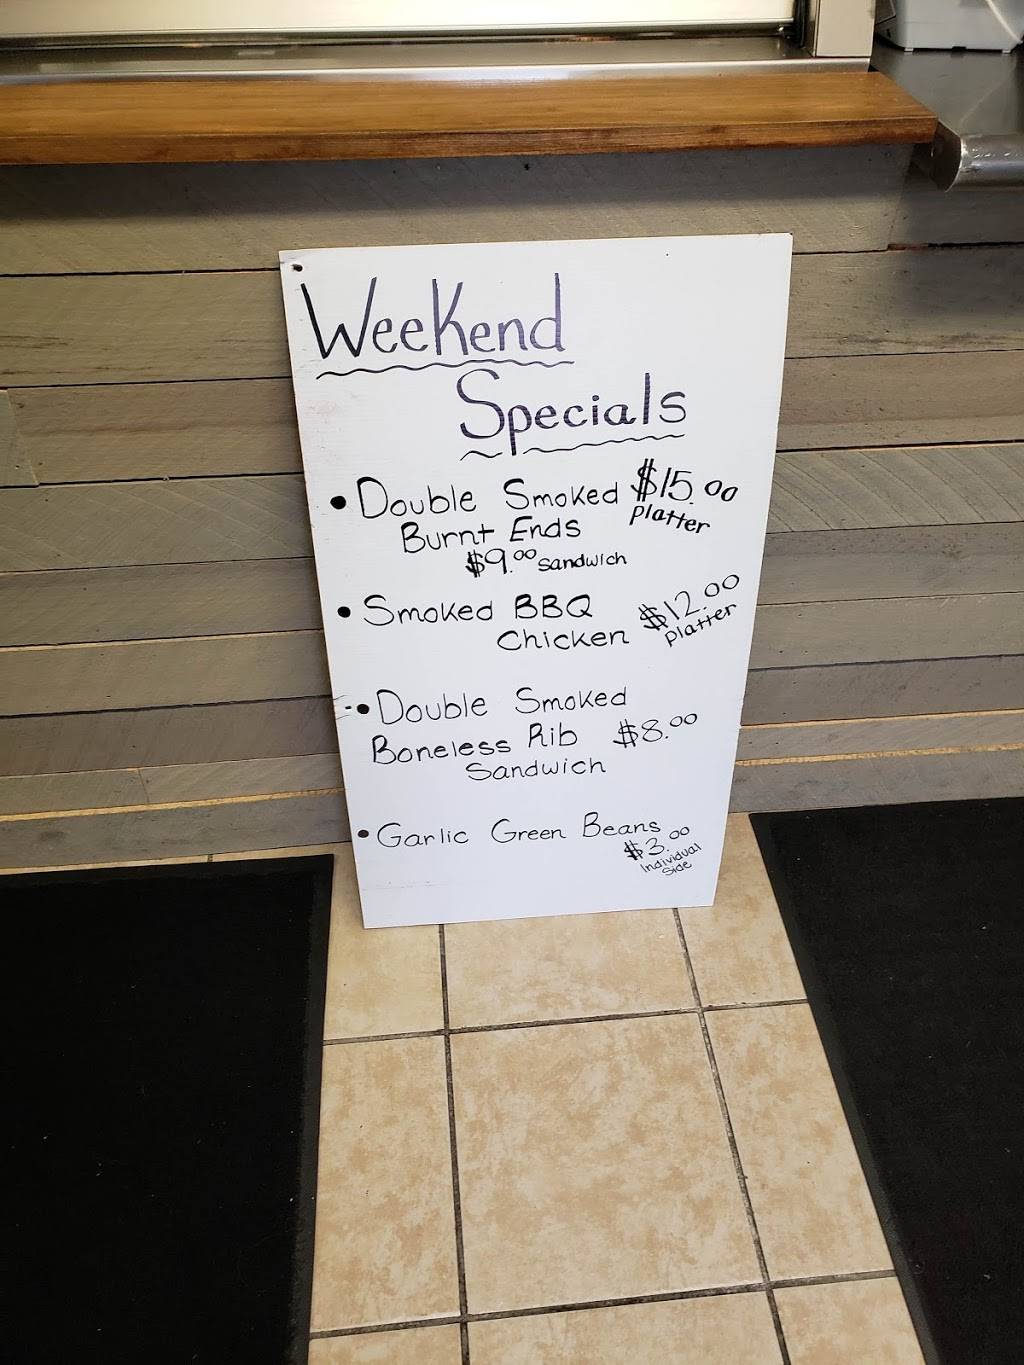 Weekend
Specials
• Double Smoked $15.00
Burnt Ends platter
$9.00 sandwich
• Smoked BBQ $12.00
Chicken platter
• Double Smoked
Boneless Rib $8.00
Sandwich
• Garlic Green Beans
$3.00
Individual
Side